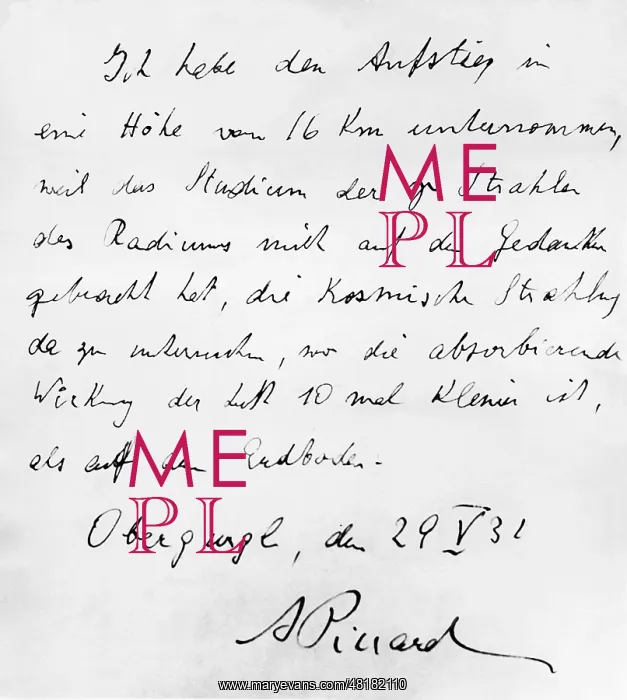 Ich habe den Aufstieg in
eine Höhe von 16 Km unternommen,
weil das Studium der γ Strahlen
des Radiums mich auf den Gedanken
gebracht hat, die Kosmische Strahlung
da zu untersuchen, wo die absorbierende
Wirkung der Luft 10 mal Kleiner ist,
als auf dem Erdboden.
Obergurgl, den 29 V 31
A Piccard
ME
PL
ME
PL
www.maryevans.com/48182110